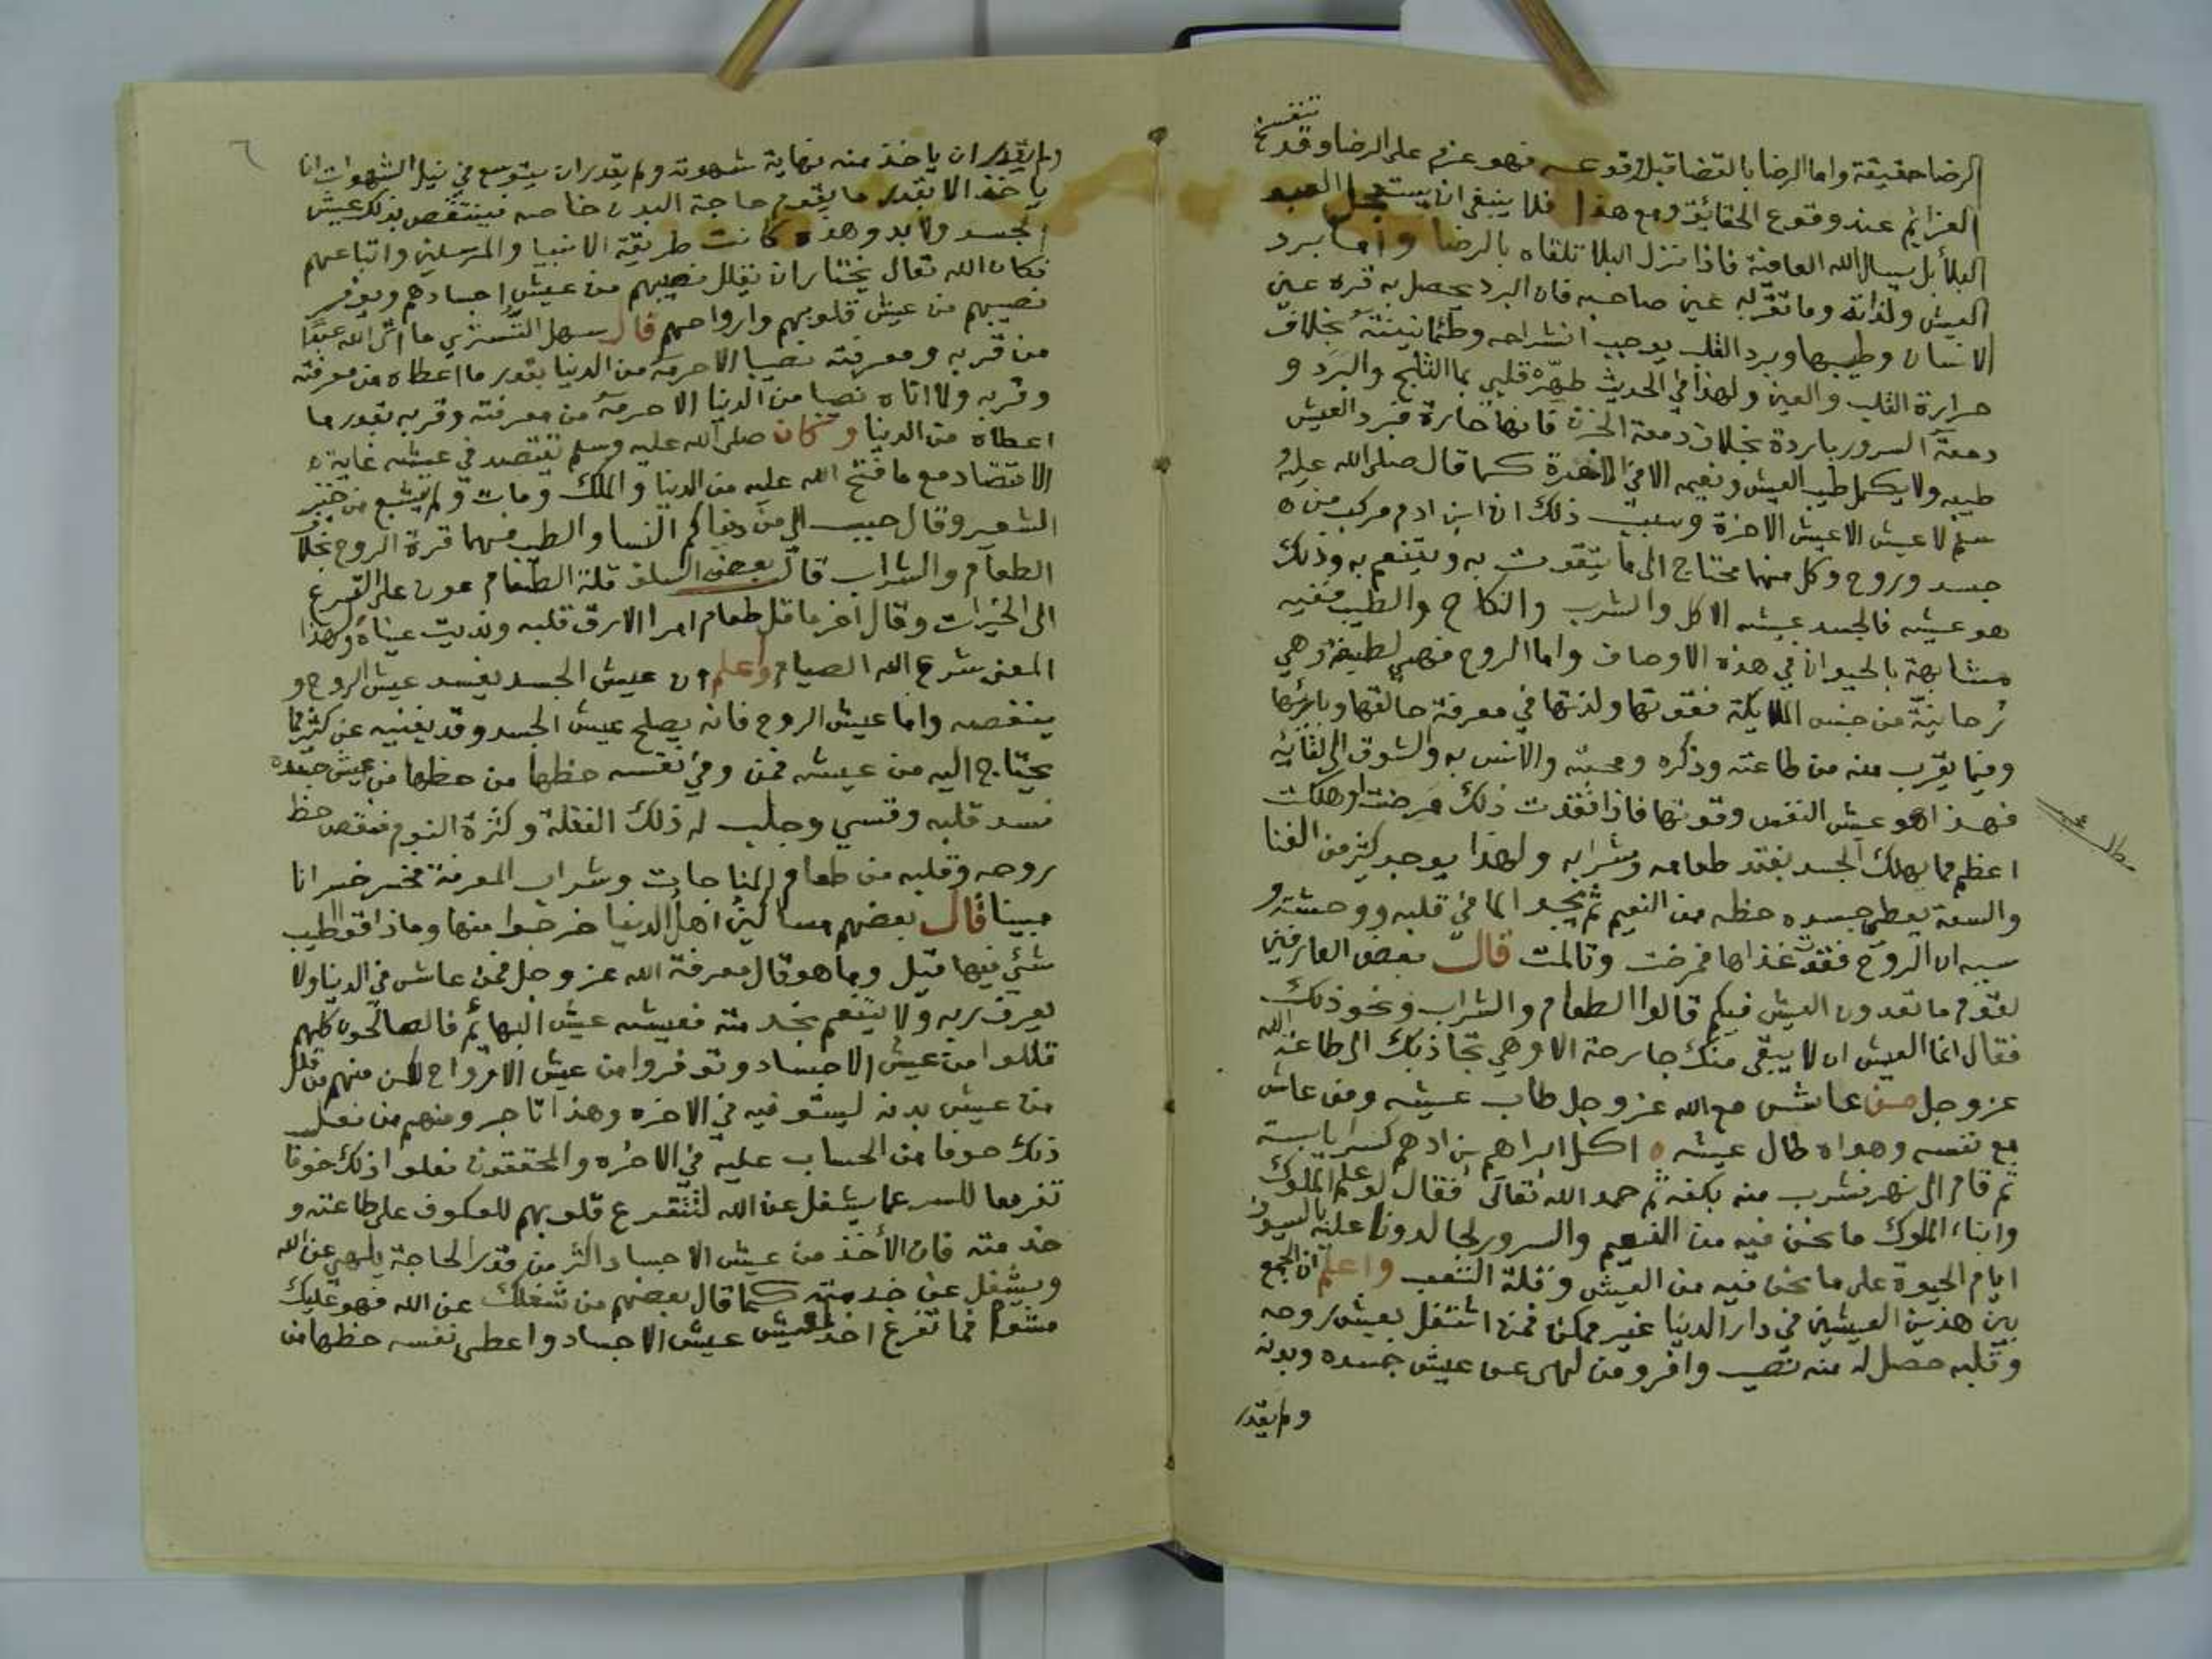 الرضا حقيقة واما الرضا بالقضا قبل وقوعه فهو عزم على الرضا وقد تنفسخ
العزايم عند وقوع الحقائق ومع هذا فلا ينبغي ان يستعجل العبد
البلا بل يسال الله العافية فاذا نزل البلا تلقاه بالرضا واما برد
العيش ولذاته وما تقر به عين صاحبه فان البرد يحصل به قره عين
الانسان وطيبها وبرد القلب يوجب انشراحه وطمانينته بخلاف
حرارة القلب والعين ولهذا في الحديث طهّر قلبي بما الثلج والبرد و
دمعة السرور باردة بخلاف دمعة الحزن فانها حارة فبرد العيش
طيبه ولا يكمل طيب العيش ونعيمه الا في الاخرة كما قال صلى الله عليه و
سلم لا عيش الا عيش الاخرة وسبب ذلك ان ابن ادم مركب من ه
جسد وروح وكل منهما محتاج الى ما يتقوت به ويتنعم به وذلك
هو عيشه فالجسد عيشه الاكل والشرب والنكاح والطيب ففيه
مشابهة بالحيوان في هذه الاوصاف واما الروح فهي لطيفة وهي
رحانيّة من جنس الملايكة فقوتها ولذتها في معرفة خالقها وبارئها
وفيما يقرب منه من طاعته وذكره ومحبته والانس به والشوق الى لقائه
فهذا هو عيش النفس وقوتها فاذا فقدت ذلك مرضت وهلكت
اعظم مما يهلك الجسد بفقد طعامه وشرابه ولهذا يوجد كثير من الغنا
والسعة يعطي جسده حظه من النعيم ثم يجد الما في قلبه ووحشة و
سببه ان الروح فقدت غذاها فمرضت وتالمت قال بعض العارفين
لقوم ما تعدون العيش فيكم قالوا الطعام والشراب ونحو ذلك
فقال انما العيش ان لا يبقى منك جارحة الا وهي تجاذبك الى طاعة الله
عز وجل من عاش مع الله عز وجل طاب عيشه ومن عاش
مع نفسه وهواه طال عيشه ه اكل ابراهيم بن ادهم كسرا يابسة
ثم قام الى نهر فشرب منه بكفه ثم حمد الله تعالى فقال لو علم الملوك
وابناء الملوك ما نحن فيه من النعيم والسرور لجالدونا عليه بالسيوف
ايام الحيوة على ما نحن فيه من العيش وقلة التعب واعلم ان الجمع
بين هذين العيشين في دار الدنيا غير ممكن فمن اشتغل بعيش روحه
وقلبه حصل له منه نصيب وافر ومن لهى عن عيش جسده وبدنه
ولم يقدر
٦
ولم يقدر ان ياخذ منه نهاية شهوته ولم يقدر ان يتوسع في نيل الشهوات انما
ياخذ الا بقدر ما يقوم حاجة البدن خاصه فينتقص بذلك عيش
الجسد ولا بد وهذه كانت طريقة الانبيا والمرسلين واتباعهم
فكان الله تعالى يختار ان يقلل نصيبهم من عيش اجسادهم ويوفر
نصيبهم من عيش قلوبهم وارواحهم قال سهل التستري ما اتى الله عبدا
من قربه ومعرفته نصيبا الا حرمه من الدنيا بقدر ما اعطاه من معرفته
وقربه ولا اتاه نصيبا من الدنيا الا حرمه من معرفته وقربه بقدر ما
اعطاه من الدنيا وكان صلى الله عليه وسلم يقتصد في عيشه غاية ه
الاقتصاد مع ما فتح الله عليه من الدنيا والملك ومات ولم يشبع من خبز
الشعير وقال حبب الي من دنياكم النسا والطيب فهما قرة الروح بخلاف
الطعام والشراب قال بعض السلف قلة الطعام عون على التسرع
الى الخيرات وقال اخر ما قل طعام امرا الا رق قلبه ونديت عيناه ولهذا
المعنى شرع الله الصيام واعلم ان عيش الجسد يفسد عيش الروح و
ينغصه واما عيش الروح فانه يصلح عيش الجسد وقد يغنيه عن كثير مما
يحتاج اليه من عيشه فمن وفي نفسه حظها من حظها من عيش جسده
فسد قلبه وقسي وجلب له ذلك الغفلة وكثرة النوم فنقص حظ
روحه وقلبه من طعام المناجات وشراب المعرفة فخسر خسرانا
مبينا قال بعضهم مساكين اهل الدنيا خرجوا منها وما ذاقوا اطيب
شئي فيها قيل وما هو قال معرفة الله عز وجل فمن عاش في الدنيا ولا
يعرف ربه ولا يتنعم بخدمته فعيشه عيش البهائم فالصالحون كلهم
قللوا من عيش الاجساد وتوفروا من عيش الارواح لكن منهم من قلل
من عيش بدنه ليستوفيه في الاخره وهذا تاجر ومنهم من فعل
ذلك خوفا من الحساب عليه في الاخره والمحققون فعلوا ذلك خوفا
تفريغا للسر عما يشغل عن الله لتتفرغ قلوبهم للعكوف على طاعته و
خدمته فان الأخذ من عيش الاجساد اكثر من قدر الحاجة يلهي عن الله
ويشغل عن خدمته كما قال بعضهم من شغلك عن الله فهو عليك
مشوم فما تفرغ احد لعيش عيش الاجساد واعطى نفسه حظها من